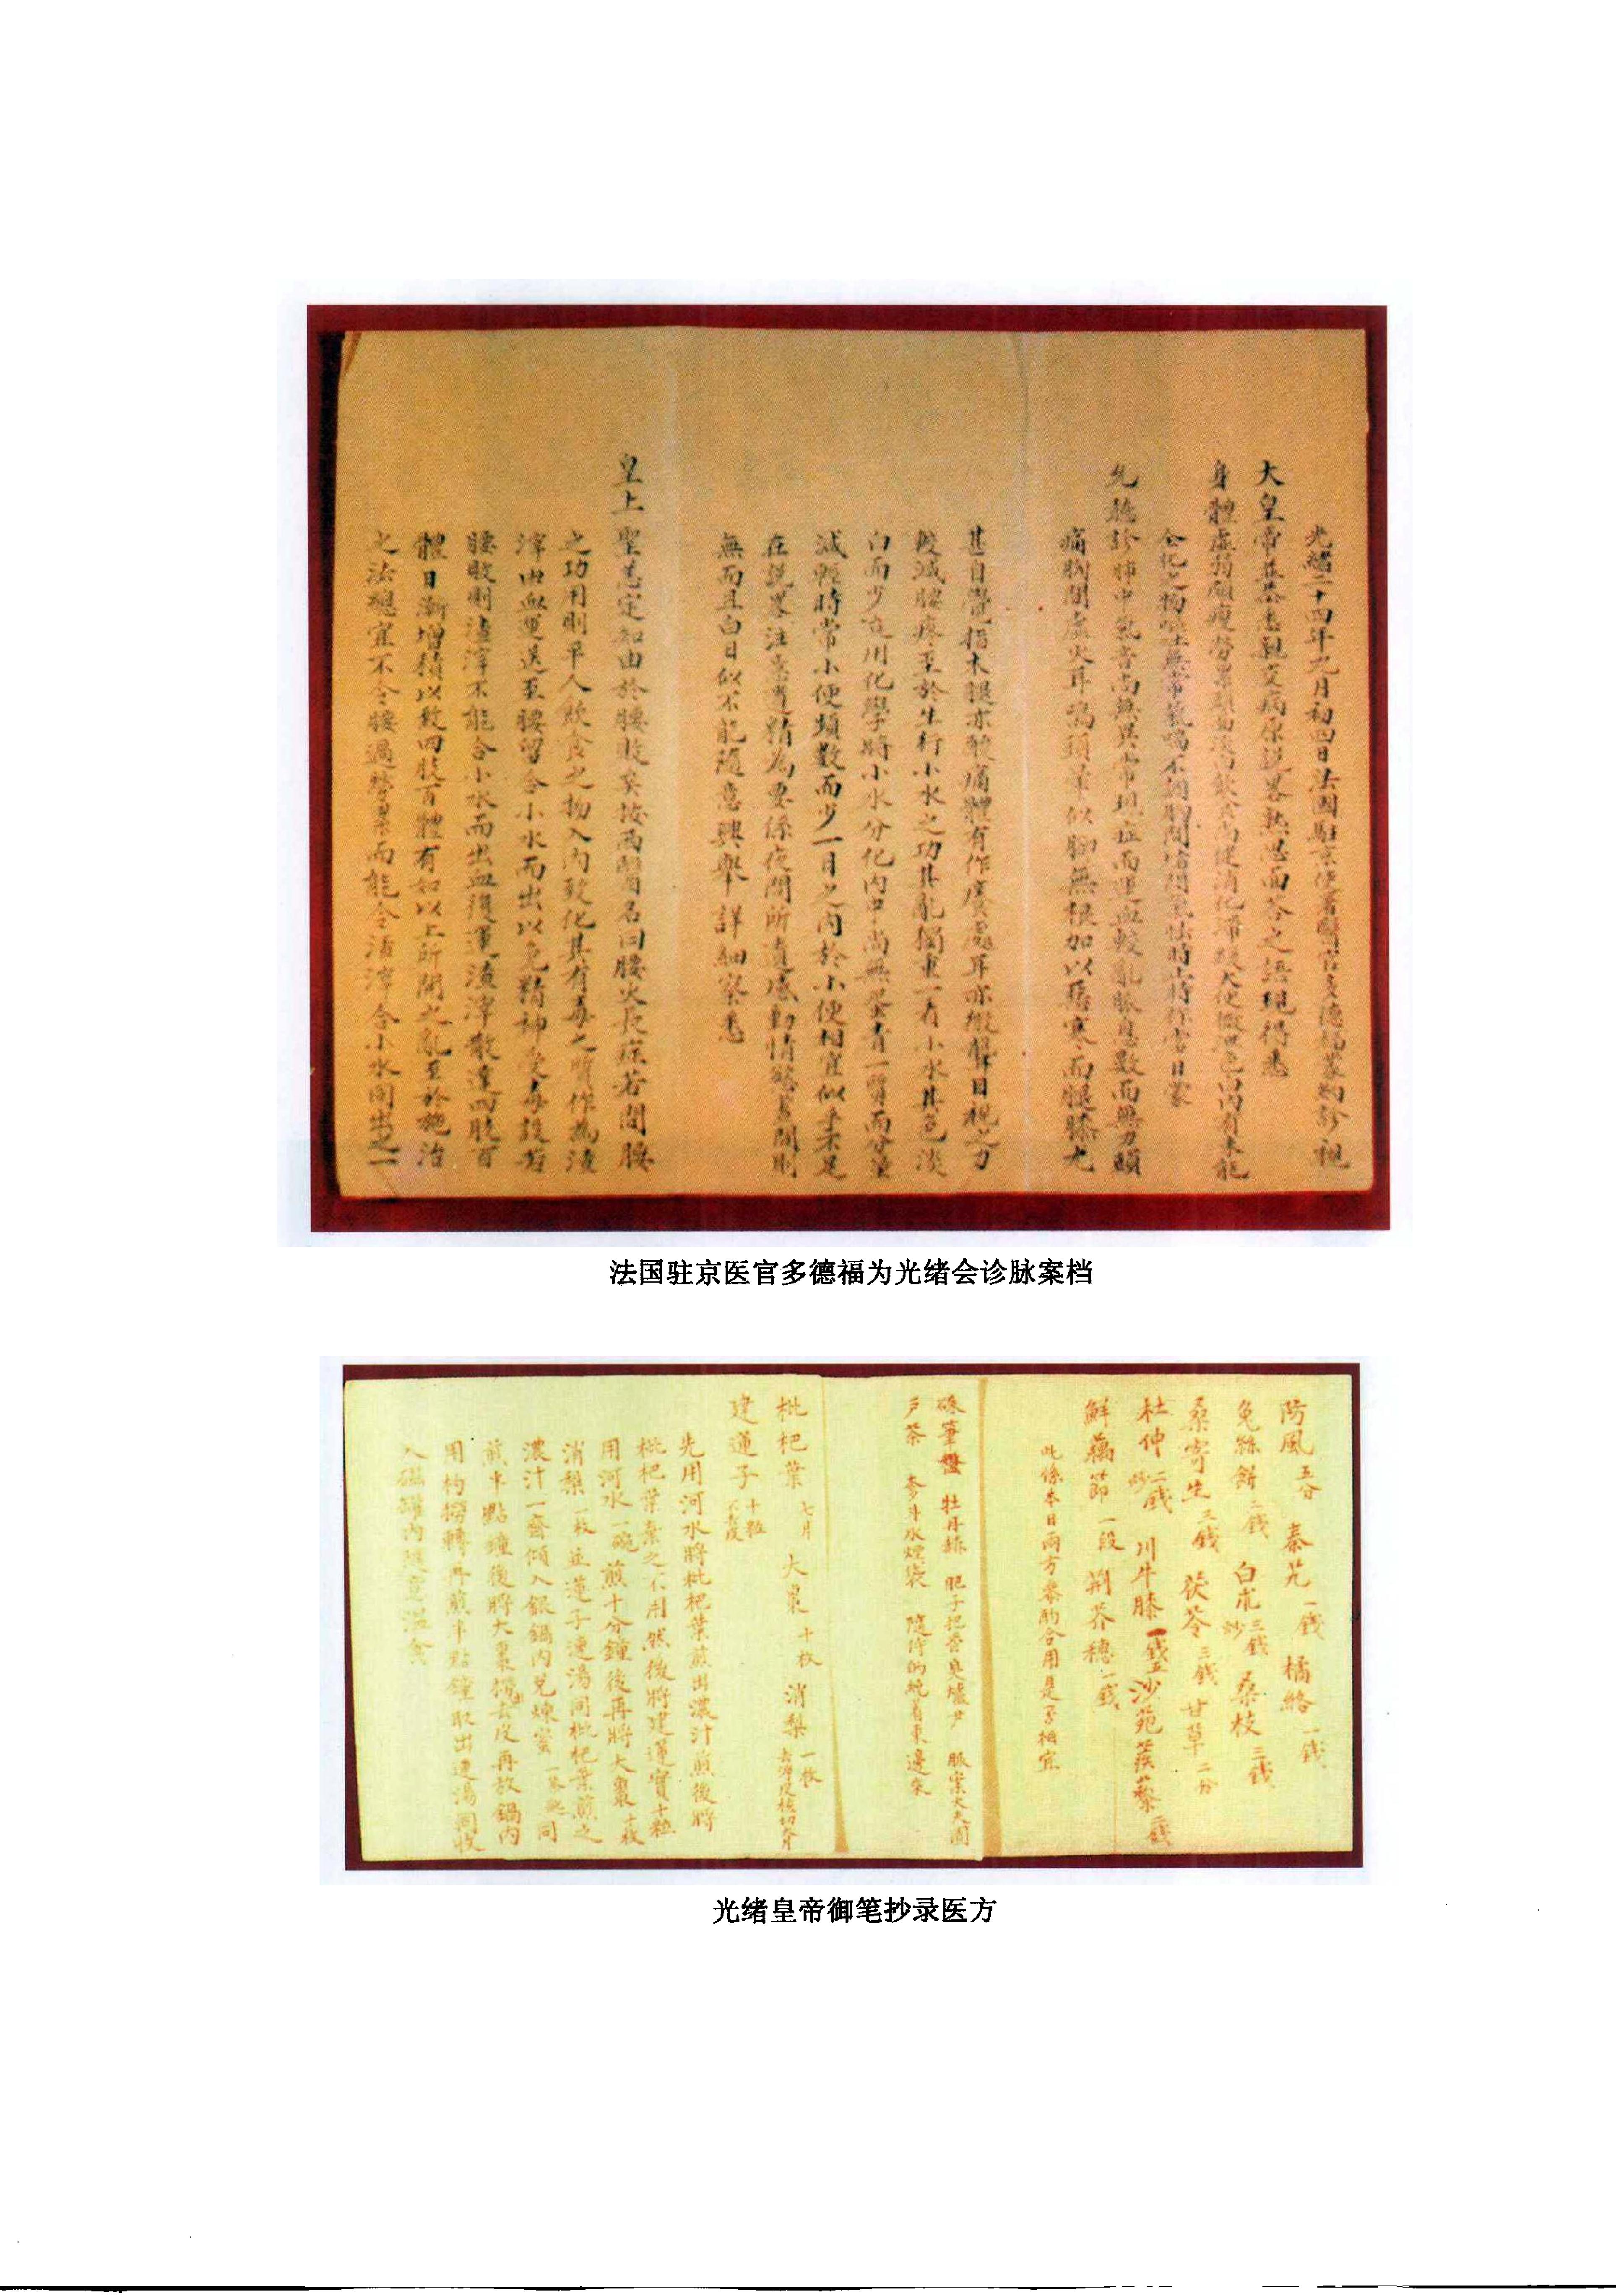 光緒二十四年九月初四日法國駐京使署醫官多德福蒙約診視
大皇帝恭悉親交病原說畧熟思面答之語現得悉
身體虛弱頗瘦勞累頭面淡白飲食尚健消化滯緩大便微溏色白內有未能
全化之物嘔吐無常氣喘不調胸間堵悶氣怯時止時作當日蒙
允聽診肺中氣音尚無異常現症而運血較亂脈息數而無力頭
痛胸間虛火耳鳴頭暈似脚無根加以惡寒而腿膝尤
甚自覺指木腿亦酸痛體有作癢處耳亦微聾目視之力
較減腰疼至於生行小水之功其亂獨重一看小水其色淡
白而少迨用化學將小水分化內中尚無蛋青一質而分量
減輕時常小便頻數而少一日之內於小便相宜似乎不足
在說畧注意遺精為要係夜間所遺感動情慾晝間則
無而且白日似不能隨意興舉詳細察悉
皇上聖恙定知由於腰敗矣按西醫名曰腰火長症若問腰
之功用則平人飲食之物入內致化其有毒之質作為渣
滓由血運送至腰留合小水而出以免精神受毒設若
腰敗則渣滓不能合小水而出血復運渣滓散達四肢百
體日漸增積以致四肢百體有如以上所開之亂至於施治
之法總宜不令腰過勞累而能令渣滓合小水同出之一
法国驻京医官多德福为光绪会诊脉案档
防風五分 秦艽一錢 橘絡一錢
兔絲餅二錢 白朮三錢炒 桑枝三錢
桑寄生三錢 茯苓三錢 甘草二分
杜仲二錢炒 川牛膝一錢五 沙苑蒺藜二錢
鮮藕節一段 荊芥穗一錢
此係本日兩方參酌合用是否相宜
硃筆盤 牡丹 肥子把 香臭爐 脈案大夫圓
戶茶 水煙袋 隨侍的純着東邊來
枇杷葉七片 大棗十枚 消梨一枚去淨皮核切片
建蓮子十粒不去皮
先用河水將枇杷葉煎出濃汁煎後將
枇杷葉棄之不用然後將建蓮實十粒
用河水一碗煎十分鐘後再將大棗十枚
消梨一枚並蓮子連湯同枇杷葉煎之
濃汁一齊傾入銀鍋內兌煉蜜同
煎半點鐘後將大棗撓去皮再放鍋內
用杓攪轉再煎半點鐘取出連湯同收
入磁罐內隨意溫食
光绪皇帝御笔抄录医方